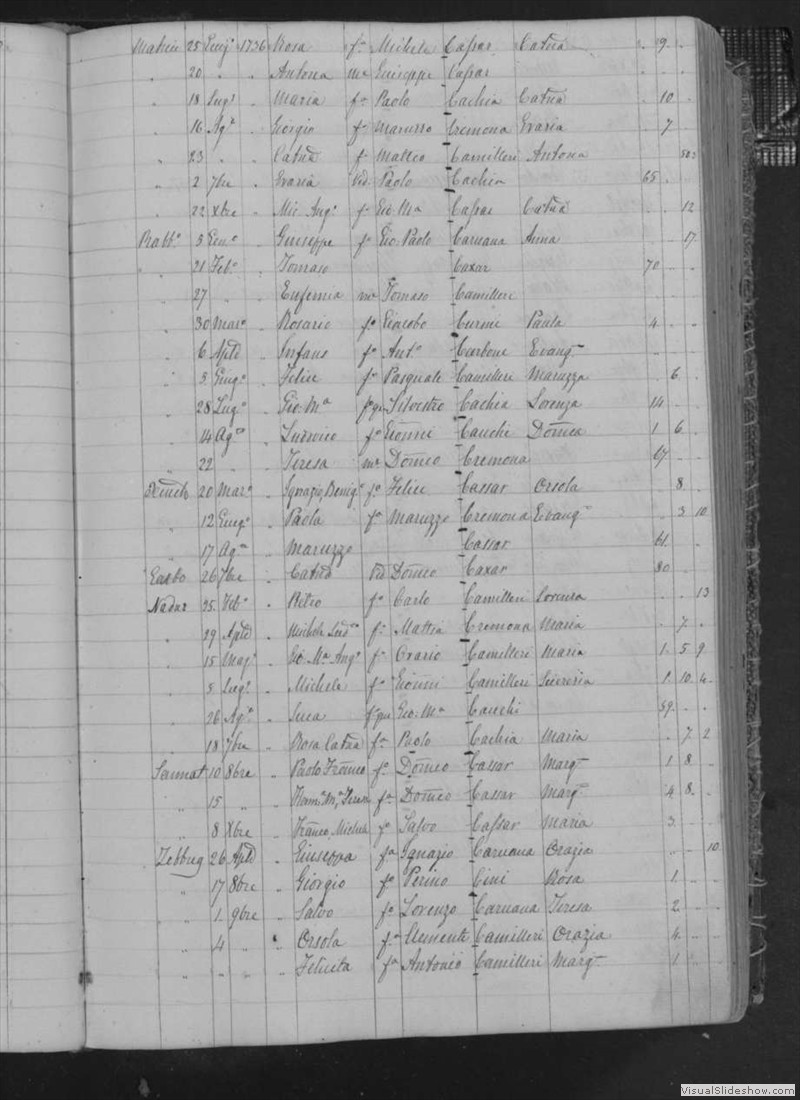 Matrice 25 Giug° 1736 Rosa fa Michele Cassar Catna . 9 .
" 20 " " Antona me Giuseppe Cassar
" 18 Lug° " Maria fa Paolo Cachia Catna . 10
" 16 Ag° " Giorgio fo Maruzzo Cremona Grazia . 7
" 23 " " Catna fa Matteo Camilleri Antona
" 2 7bre " Grazia Vid. Paolo Cachia 65
" 22 Xbre " Mic. Ang° fo Gio Ma Cassar Catna . . 12
Rabbo 3 Gen° " Giuseppe fo Gio. Paolo Caruana Anna . . 17
" 21 Feb° " Tomaso Caxar 70
" 27 " Eufemia me Tomaso Camilleri
" 30 Mar° " Rosario fo Giacobo Curmi Paula 4
" 6 Aple " Infans fo Ant° Carbone Evang.
" 5 Giug° " Felice fo Pasquale Camilleri Maruzza . 6
" 28 Lug° " Gio Ma fo qm Silvestro Cachia Lorenza 14
" 14 Ag° " Ludovico fo Gionni Cauchi Domca 1 6
" 22 " Teresa me Domco Cremona 67
20 Mar° " Ignazio, Benig° fo Felice Cassar Orsola . 8
" 12 Giug° " Paola fa Maruzzo Cremona Evang. . 3 10
" 17 Ag° " Maruzzo Cassar 61
Garbo 26 7bre " Catna Vid Domco Caxar 80
Nadur 25 Feb° " Pietro fo Carlo Camilleri Lorenza . . 13
" 29 Aple " Michele fo Mattia Cremona Maria . 7
" 15 Mag° " Gio. Ma Ang° fo Orazio Camilleri Maria 1 5 9
" 5 Lug° " Michele fo Gionni Camilleri 1 10 4
" 26 Ag° " Luca fo qm Gio. Ma Cauchi 59
" 18 7bre " Rosa Catna fa Paolo Cachia Maria . 7 2
Sannat 10 8bre " Paolo Franco fo Domco Cassar Marg. 1 8
" 15 " " Teresa fa Domco Cassar Marg. 4 8
" 8 Xbre " Franco, Michele fo Salvo Cassar Maria 3
Zebbug 26 Aple " Giuseppa fa Ignazio Caruana Orazia . . 10
" 17 8bre " Giorgio fo Perino Cini Rosa 1
" 1 9bre " Salvo fo Lorenzo Caruana Teresa 2
" 4 " " Orsola fa Clemente Camilleri Orazia 4
" " " Felicita fa Antonio Camilleri Marg. 1
VisualSlideshow.com